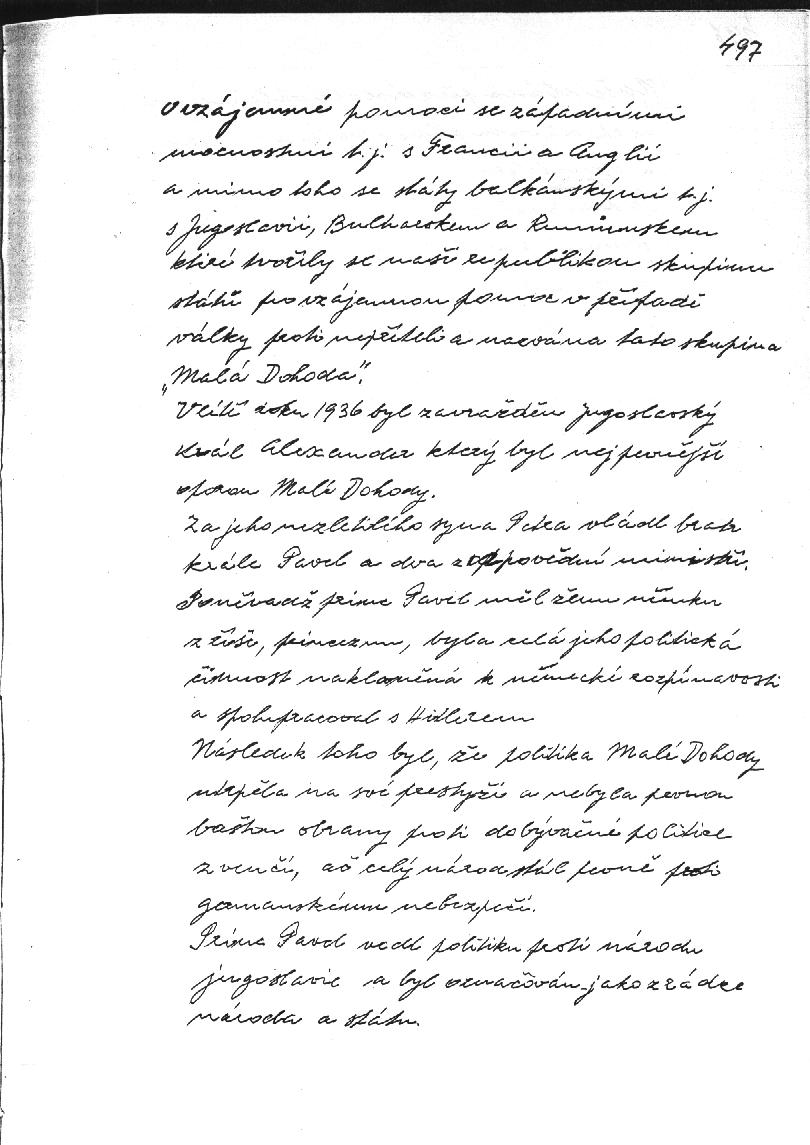 497
o vzájemné pomoci se západními
mocnostmi t.j. s Francii a Anglií
a mimo toho se státy balkánskými t.j.
s Jugoslavii, Bulharskem a Rumunskem
které tvořily se naší republikou skupinu
států pro vzájemnou pomoc v případě
války proti nepříteli a nazvána tato skupina
„Malá Dohoda".
V létě roku 1936 byl zavražděn jugoslavský
král Alexander který byl nejpevnější
oporou Malé Dohody.
Za jeho nezletilého syna Petra vládl bratr
krále Pavel a dva zodpovědní ministři.
Poněvadž princ Pavel měl ženu němku
z říše, princeznu, byla celá jeho politická
činnost nakloněná k německé rozpínavosti
a spolupracoval s Hitlerem
Následek toho byl, že politika Malé Dohody
utrpěla na své prestyži a nebyla pevnou
baštou obrany proti dobývačné politice
z venčí, ač celý národ stál pevně proti
germanskému nebezpečí.
Princ Pavel vedl politiku proti národu
jugoslavie a byl označován jako zrádce
národa a státu.